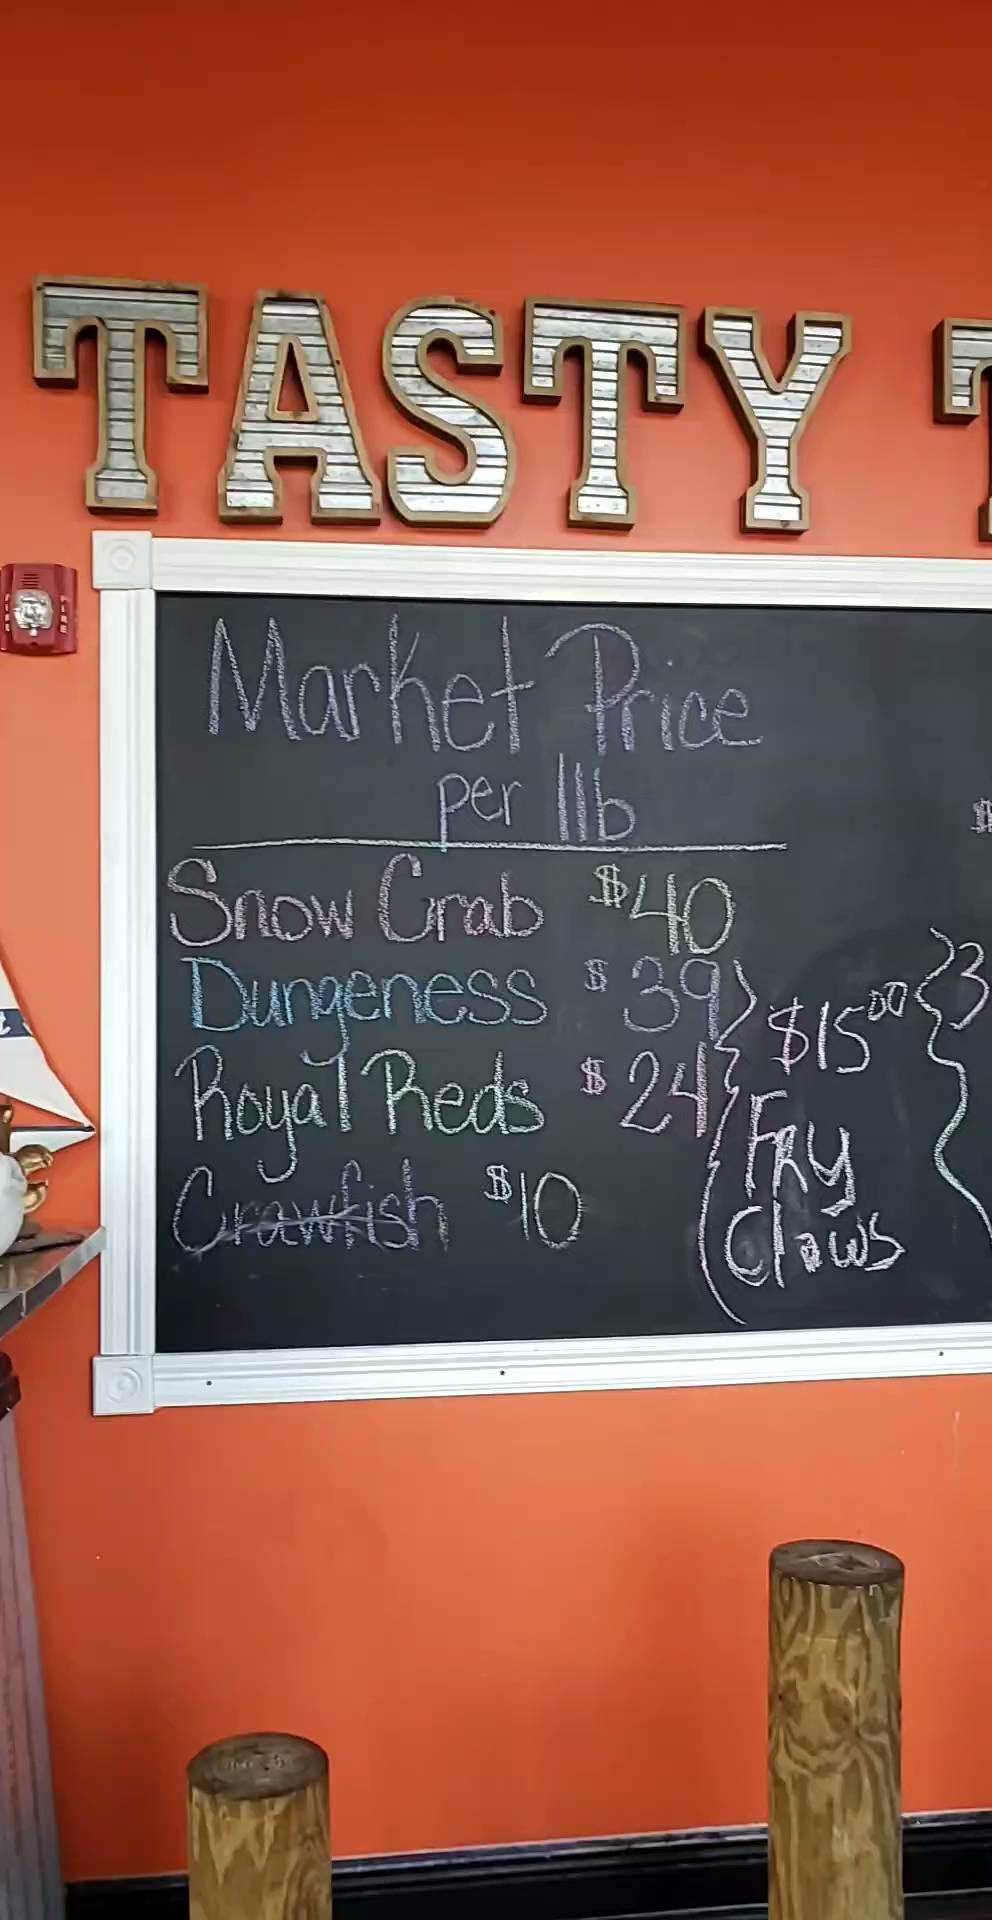 TASTY T
Market Price
per 1lb
Snow Crab $40
Dungeness $39
Royal Reds $24
Crawfish $10
$15.00
Fry
Claws
$
3
FIRE